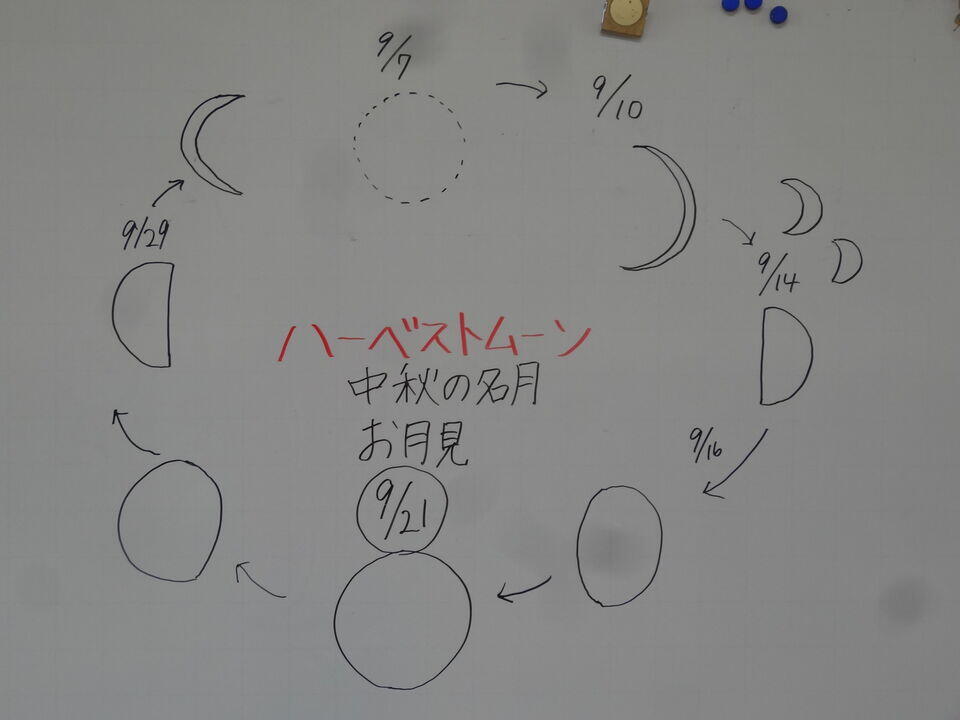 9/7
9/10
9/29
9/14
ハーベストムーン
中秋の名月
お月見
9/16
9/21